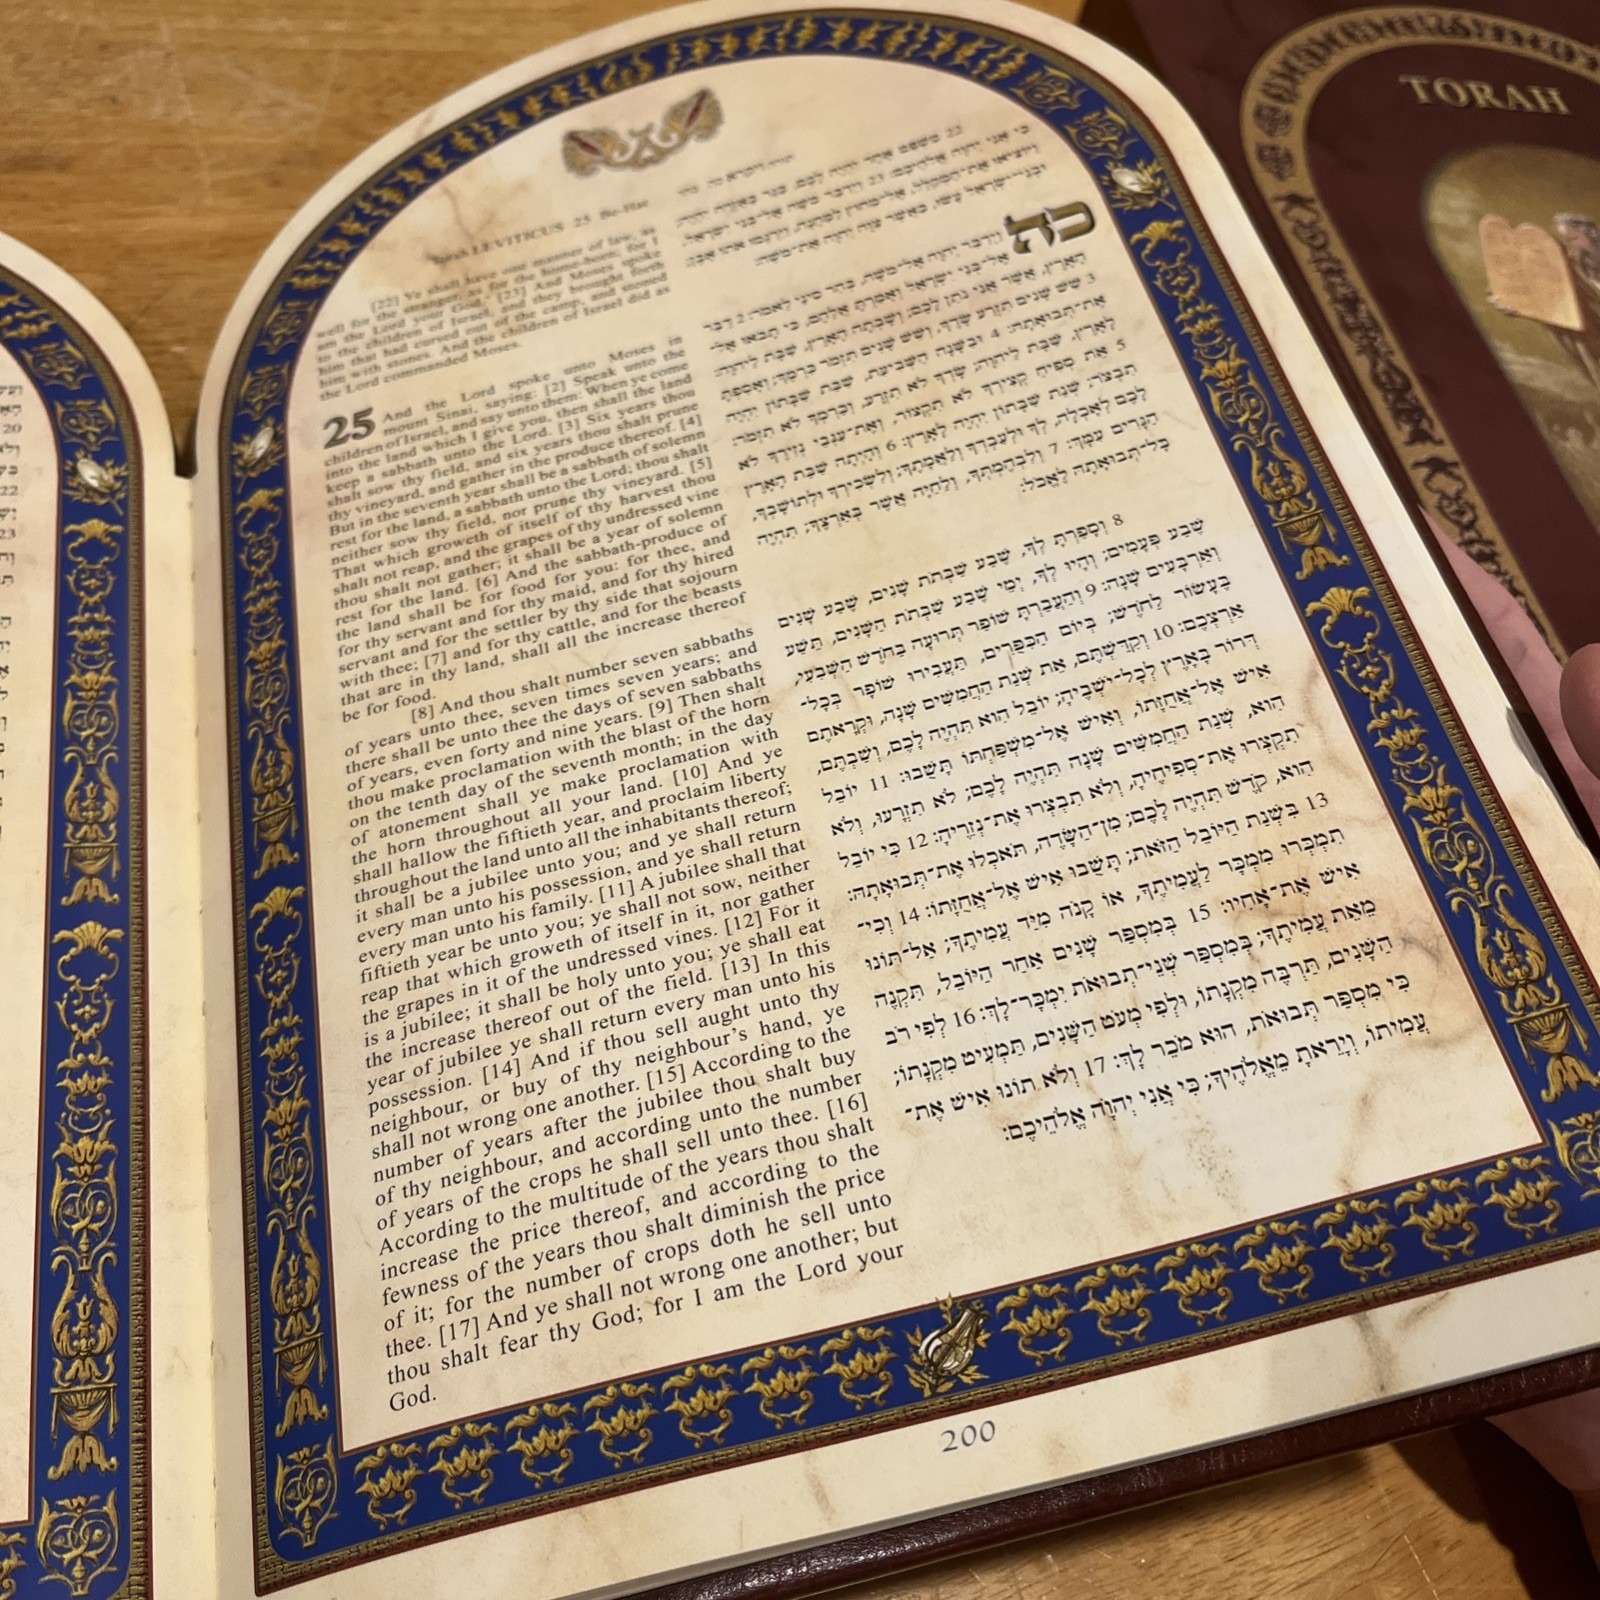 Torah LEVITICUS 25 Be-Har
[22] Ye shall have one manner of law, as
well for the stranger, as for the home-born; for I
am the Lord your God.' [23] And Moses spoke
to the children of Israel, and they brought forth
him that had cursed out of the camp, and stoned
him with stones. And the children of Israel did as
the Lord commanded Moses.
25 And the Lord spoke unto Moses in
mount Sinai, saying: [2] Speak unto the
children of Israel, and say unto them: When ye come
into the land which I give you, then shall the land
keep a sabbath unto the Lord. [3] Six years thou
shalt sow thy field, and six years thou shalt prune
thy vineyard, and gather in the produce thereof. [4]
But in the seventh year shall be a sabbath of solemn
rest for the land, a sabbath unto the Lord; thou shalt
neither sow thy field, nor prune thy vineyard. [5]
That which groweth of itself of thy harvest thou
shalt not reap, and the grapes of thy undressed vine
thou shalt not gather; it shall be a year of solemn
rest for the land. [6] And the sabbath-produce of
the land shall be for food for you: for thee, and
for thy servant and for thy maid, and for thy hired
servant and for the settler by thy side that sojourn
with thee; [7] and for thy cattle, and for the beasts
that are in thy land, shall all the increase thereof
be for food.
[8] And thou shalt number seven sabbaths
of years unto thee, seven times seven years; and
there shall be unto thee the days of seven sabbaths
of years, even forty and nine years. [9] Then shalt
thou make proclamation with the blast of the horn
on the tenth day of the seventh month; in the day
of atonement shall ye make proclamation with
the horn throughout all your land. [10] And ye
shall hallow the fiftieth year, and proclaim liberty
throughout the land unto all the inhabitants thereof;
it shall be a jubilee unto you; and ye shall return
every man unto his possession, and ye shall return
every man unto his family. [11] A jubilee shall that
fiftieth year be unto you; ye shall not sow, neither
reap that which groweth of itself in it, nor gather
the grapes in it of the undressed vines. [12] For it
is a jubilee; it shall be holy unto you; ye shall eat
the increase thereof out of the field. [13] In this
year of jubilee ye shall return every man unto his
possession. [14] And if thou sell aught unto thy
neighbour, or buy of thy neighbour's hand, ye
shall not wrong one another. [15] According to the
number of years after the jubilee thou shalt buy
of thy neighbour, and according unto the number
of years of the crops he shall sell unto thee. [16]
According to the multitude of the years thou shalt
increase the price thereof, and according to the
fewness of the years thou shalt diminish the price
of it; for the number of crops doth he sell unto
thee. [17] And ye shall not wrong one another; but
thou shalt fear thy God; for I am the Lord your
God.
22 מִשְׁפַּט אֶחָד יִהְיֶה לָכֶם, כַּגֵּר כָּאֶזְרָח יִהְיֶה;
כִּי אֲנִי יְהוָה אֱלֹהֵיכֶם: 23 וַיְדַבֵּר מֹשֶׁה אֶל־בְּנֵי יִשְׂרָאֵל,
וַיּוֹצִיאוּ אֶת־הַמְקַלֵּל, אֶל־מִחוּץ לַמַּחֲנֶה, וַיִּרְגְּמוּ אֹתוֹ אָבֶן;
וּבְנֵי־יִשְׂרָאֵל עָשׂוּ, כַּאֲשֶׁר צִוָּה יְהוָה אֶת־מֹשֶׁה:
כה וַיְדַבֵּר יְהוָה אֶל־מֹשֶׁה, בְּהַר סִינַי לֵאמֹר: 2 דַּבֵּר
אֶל־בְּנֵי יִשְׂרָאֵל וְאָמַרְתָּ אֲלֵהֶם, כִּי תָבֹאוּ אֶל־
הָאָרֶץ, אֲשֶׁר אֲנִי נֹתֵן לָכֶם; וְשָׁבְתָה הָאָרֶץ, שַׁבָּת לַיהוָה:
3 שֵׁשׁ שָׁנִים תִּזְרַע שָׂדֶךָ, וְשֵׁשׁ שָׁנִים תִּזְמֹר כַּרְמֶךָ; וְאָסַפְתָּ
אֶת־תְּבוּאָתָהּ: 4 וּבַשָּׁנָה הַשְּׁבִיעִת, שַׁבַּת שַׁבָּתוֹן יִהְיֶה
לָאָרֶץ, שַׁבָּת לַיהוָה; שָׂדְךָ לֹא תִזְרָע, וְכַרְמְךָ לֹא תִזְמֹר:
5 אֵת סְפִיחַ קְצִירְךָ לֹא תִקְצוֹר, וְאֶת־עִנְּבֵי נְזִירֶךָ לֹא
תִבְצֹר; שְׁנַת שַׁבָּתוֹן יִהְיֶה לָאָרֶץ: 6 וְהָיְתָה שַׁבַּת הָאָרֶץ
לָכֶם לְאָכְלָה, לְךָ וּלְעַבְדְּךָ וְלַאֲמָתֶךָ; וְלִשְׂכִירְךָ וּלְתוֹשָׁבְךָ,
הַגָּרִים עִמָּךְ: 7 וְלִבְהֶמְתְּךָ, וְלַחַיָּה אֲשֶׁר בְּאַרְצֶךָ; תִּהְיֶה
כָל־תְּבוּאָתָהּ לֶאֱכֹל:
8 וְסָפַרְתָּ לְךָ, שֶׁבַע שַׁבְּתֹת שָׁנִים, שֶׁבַע שָׁנִים
שֶׁבַע פְּעָמִים; וְהָיוּ לְךָ, יְמֵי שֶׁבַע שַׁבְּתֹת הַשָּׁנִים, תֵּשַׁע
וְאַרְבָּעִים שָׁנָה: 9 וְהַעֲבַרְתָּ שׁוֹפַר תְּרוּעָה בַּחֹדֶשׁ הַשְּׁבִעִי,
בֶּעָשׂוֹר לַחֹדֶשׁ; בְּיוֹם הַכִּפֻּרִים, תַּעֲבִירוּ שׁוֹפָר בְּכָל־
אַרְצְכֶם: 10 וְקִדַּשְׁתֶּם, אֵת שְׁנַת הַחֲמִשִּׁים שָׁנָה, וּקְרָאתֶם
דְּרוֹר בָּאָרֶץ לְכָל־יֹשְׁבֶיהָ; יוֹבֵל הִוא תִּהְיֶה לָכֶם, וְשַׁבְתֶּם,
אִישׁ אֶל־אֲחֻזָּתוֹ, וְאִישׁ אֶל־מִשְׁפַּחְתּוֹ תָּשֻׁבוּ: 11 יוֹבֵל
הִוא, שְׁנַת הַחֲמִשִּׁים שָׁנָה תִּהְיֶה לָכֶם; לֹא תִזְרָעוּ, וְלֹא
תִקְצְרוּ אֶת־סְפִיחֶיהָ, וְלֹא תִבְצְרוּ אֶת־נְזִרֶיהָ: 12 כִּי יוֹבֵל
הִוא, קֹדֶשׁ תִּהְיֶה לָכֶם; מִן־הַשָּׂדֶה, תֹּאכְלוּ אֶת־תְּבוּאָתָהּ:
13 בִּשְׁנַת הַיּוֹבֵל הַזֹּאת; תָּשֻׁבוּ אִישׁ אֶל־אֲחֻזָּתוֹ: 14 וְכִי־
תִמְכְּרוּ מִמְכָּר לַעֲמִיתֶךָ, אוֹ קָנֹה מִיַּד עֲמִיתֶךָ; אַל־תּוֹנוּ
אִישׁ אֶת־אָחִיו: 15 בְּמִסְפַּר שָׁנִים אַחַר הַיּוֹבֵל, תִּקְנֶה
מֵאֵת עֲמִיתֶךָ; בְּמִסְפַּר שְׁנֵי־תְבוּאֹת יִמְכָּר־לָךְ: 16 לְפִי רֹב
הַשָּׁנִים, תַּרְבֶּה מִקְנָתוֹ, וּלְפִי מְעֹט הַשָּׁנִים, תַּמְעִיט מִקְנָתוֹ;
כִּי מִסְפַּר תְּבוּאֹת, הוּא מֹכֵר לָךְ: 17 וְלֹא תוֹנוּ אִישׁ אֶת־
עֲמִיתוֹ, וְיָרֵאתָ מֵאֱלֹהֶיךָ; כִּי אֲנִי יְהוָה אֱלֹהֵיכֶם:
200
TORAH